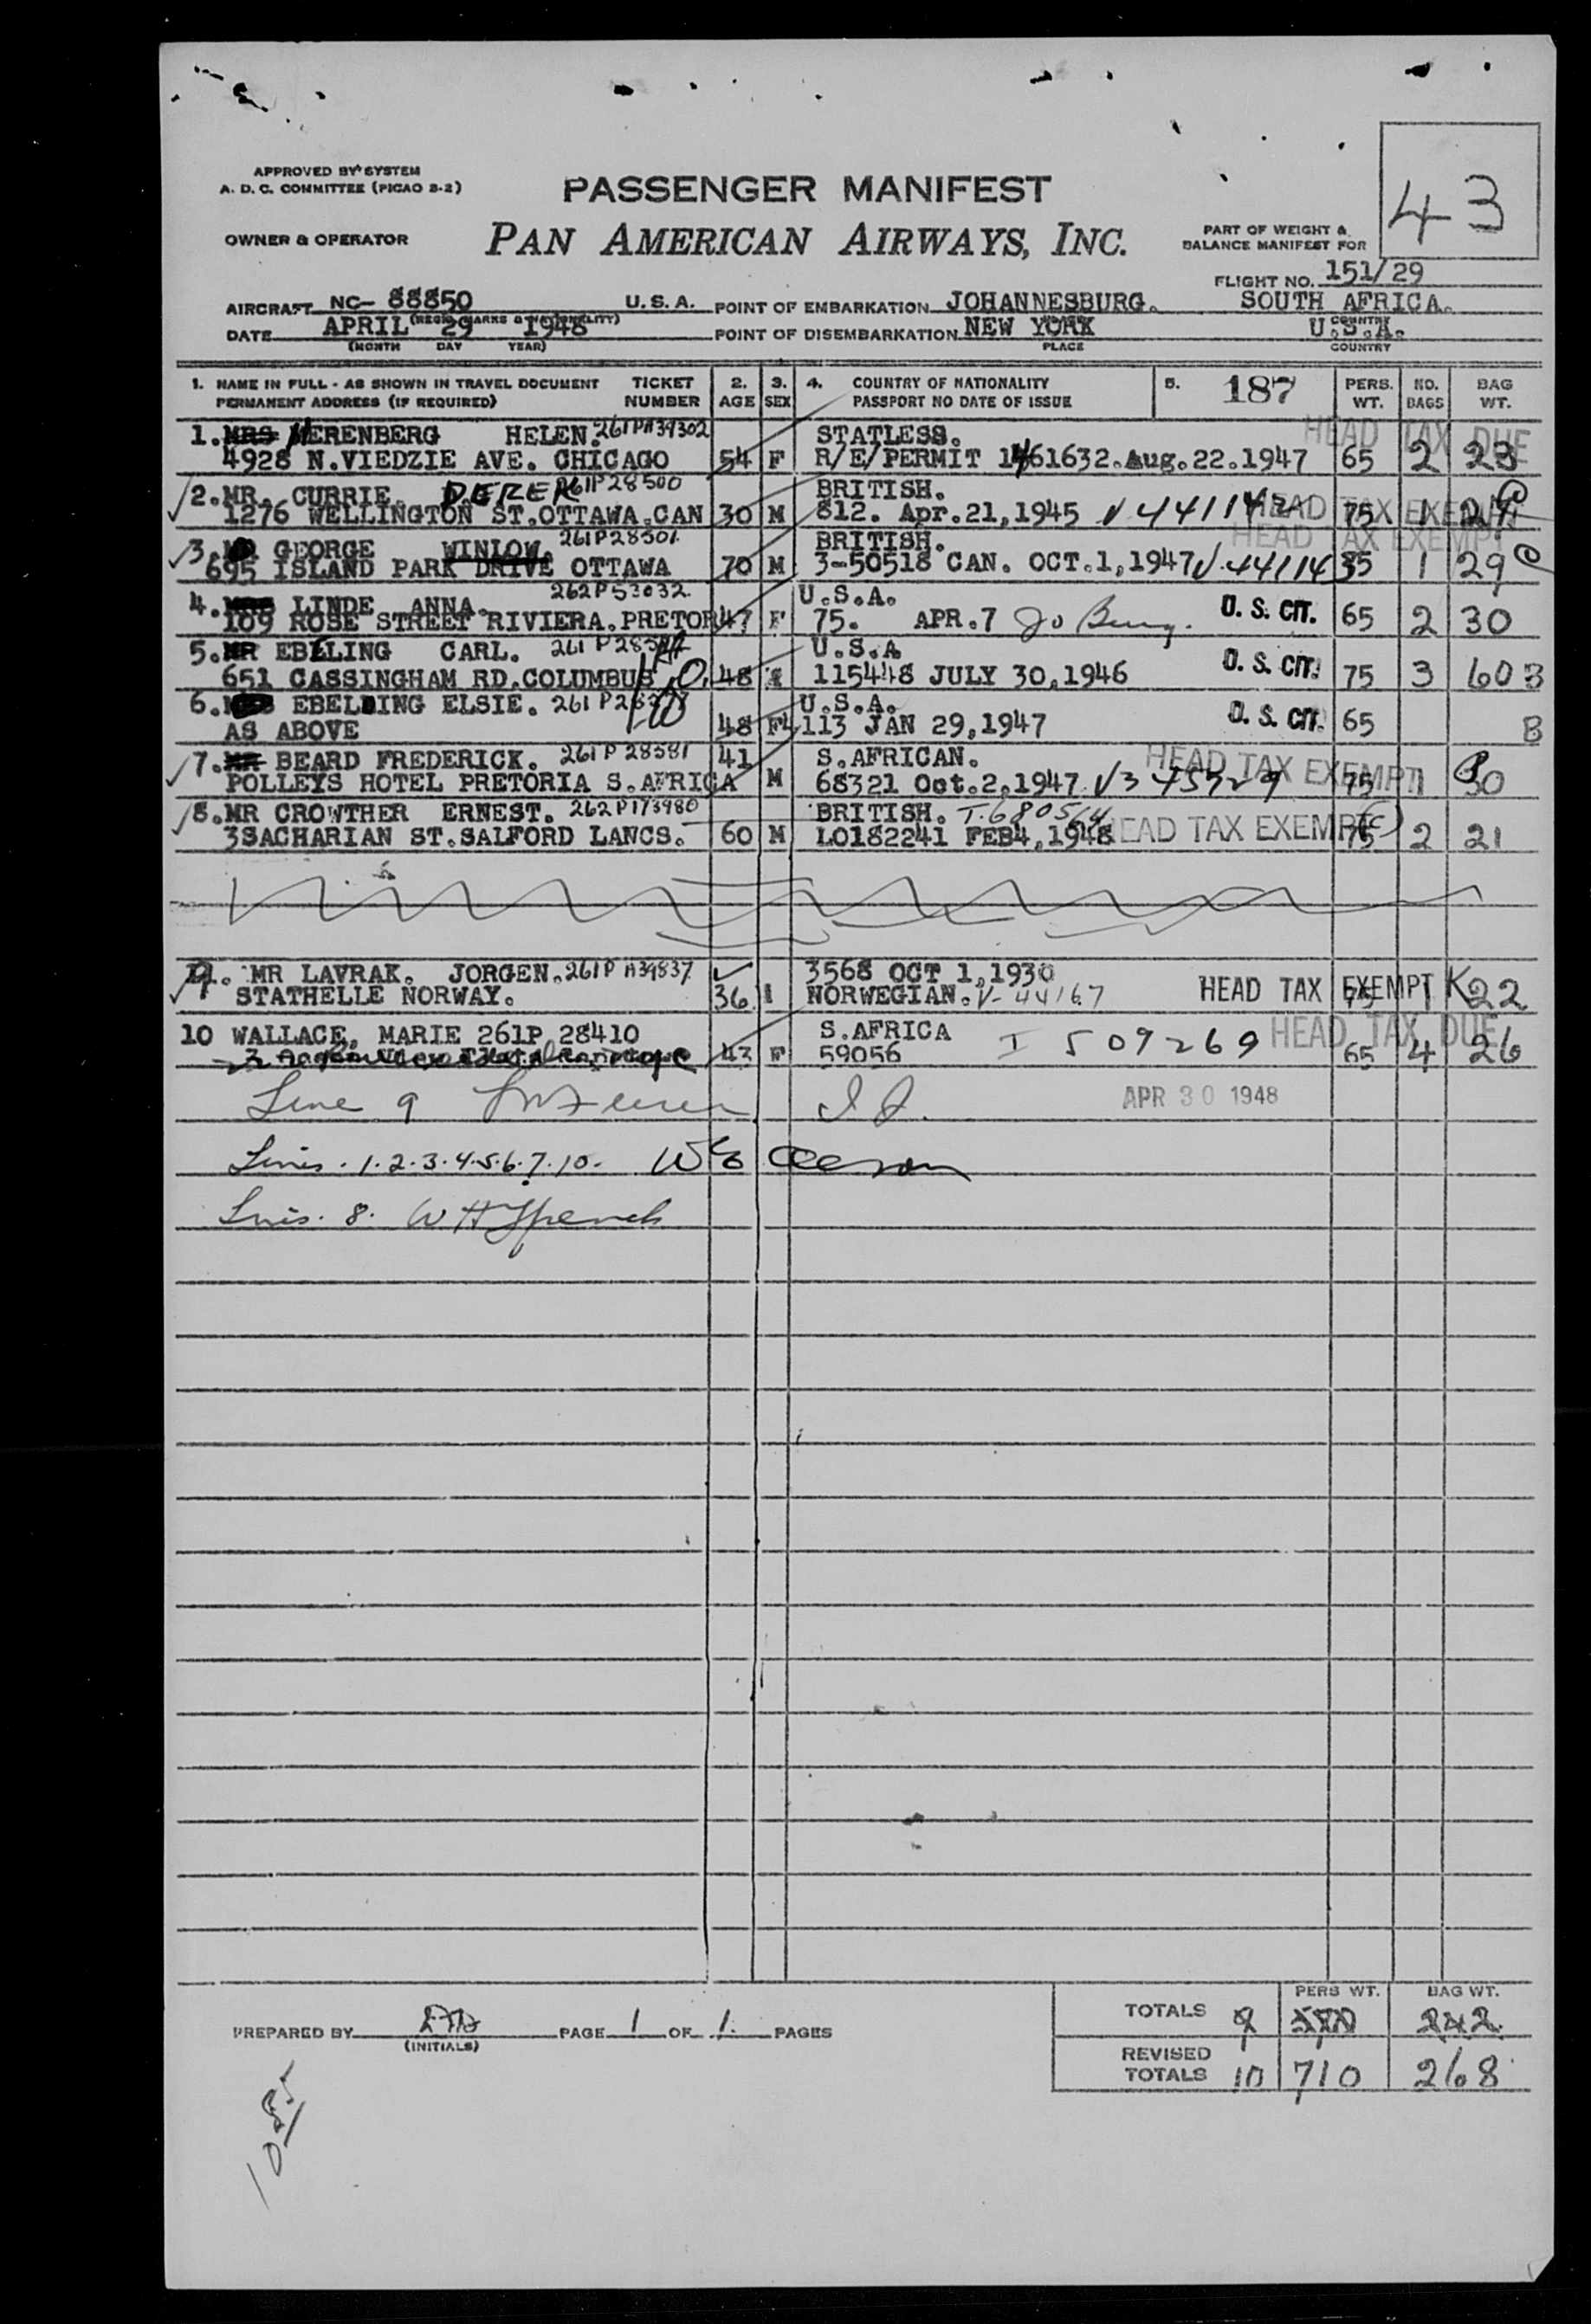 APPROVED BY SYSTEM
A. D. C. COMMITTEE (PICAO 2-2)
PASSENGER MANIFEST
43
OWNER & OPERATOR
PAN AMERICAN AIRWAYS, INC.
PART OF WEIGHT &
BALANCE MANIFEST FOR
FLIGHT NO. 151/29
AIRCRAFT NC- 88850 U. S. A. POINT OF EMBARKATION JOHANNESBURG. SOUTH AFRICA.
DATE APRIL 29 1948 POINT OF DISEMBARKATION NEW YORK U.S.A.
(MONTH DAY YEAR) PLACE COUNTRY
1. NAME IN FULL - AS SHOWN IN TRAVEL DOCUMENT TICKET 2. 3. 4. COUNTRY OF NATIONALITY 5. 187 PERS. NO. BAG
PERMANENT ADDRESS (IF REQUIRED) NUMBER AGE SEX PASSPORT NO DATE OF ISSUE WT. BAGS WT.
1. MRS ERENBERG HELEN. 261PA39302 STATLESS. HEAD TAX DUE
4928 N.VIEDZIE AVE. CHICAGO 54 F R/E/PERMIT 1461632.Aug.22.1947 65 2 23
2. MR. CURRIE. DEREK 261P28500 BRITISH. HEAD TAX EXEMPT
1276 WELLINGTON ST.OTTAWA.CAN 30 M 812. Apr.21,1945 75 1 29
3. GEORGE WINLOW. 261P28501 BRITISH. HEAD TAX EXEMPT
695 ISLAND PARK DRIVE OTTAWA 70 M 3-50518 CAN. OCT.1,1947 V.44114 1 29
4. LINDE ANNA. 262P53032 U.S.A.
109 ROSE STREET RIVIERA.PRETOR 47 F 75. APR.7 Jo Burg. U. S. CIT. 65 2 30
5. MR EBELING CARL. U.S.A
651 CASSINGHAM RD.COLUMBUS, O. 48 115448 JULY 30,1946 U. S. CIT. 75 3 60 B
6. EBELING ELSIE. U.S.A.
AS ABOVE 48 F 113 JAN 29,1947 U. S. CIT. 65 B
7. MR BEARD FREDERICK. 261P28581 41 S.AFRICAN. HEAD TAX EXEMPT
POLLEYS HOTEL PRETORIA S.AFRICA M 68321 Oct.2,1947 75 1 30
8. MR CROWTHER ERNEST. 262P173980 BRITISH. T.680564
3SACHARIAN ST.SALFORD LANCS. 60 M LO182241 FEB4,1948 HEAD TAX EXEMPT 75 2 21
9. MR LAVRAK. JORGEN. 261PA39837 3568 OCT 1,1930
STATHELLE NORWAY. 36 NORWEGIAN. V-44167 HEAD TAX EXEMPT 75 1 K22
10 WALLACE, MARIE 261P 28410 S.AFRICA I 509269 HEAD TAX DUE
43 F 59056 65 4 26
Line 9 APR 30 1948
Lines . 1.2.3.4.5.6.7.10.
Lines. 8.
PERS WT. BAG WT.
TOTALS 9 242
PREPARED BY PAGE 1 OF 1. PAGES
(INITIALS)
REVISED
TOTALS 10 710 268